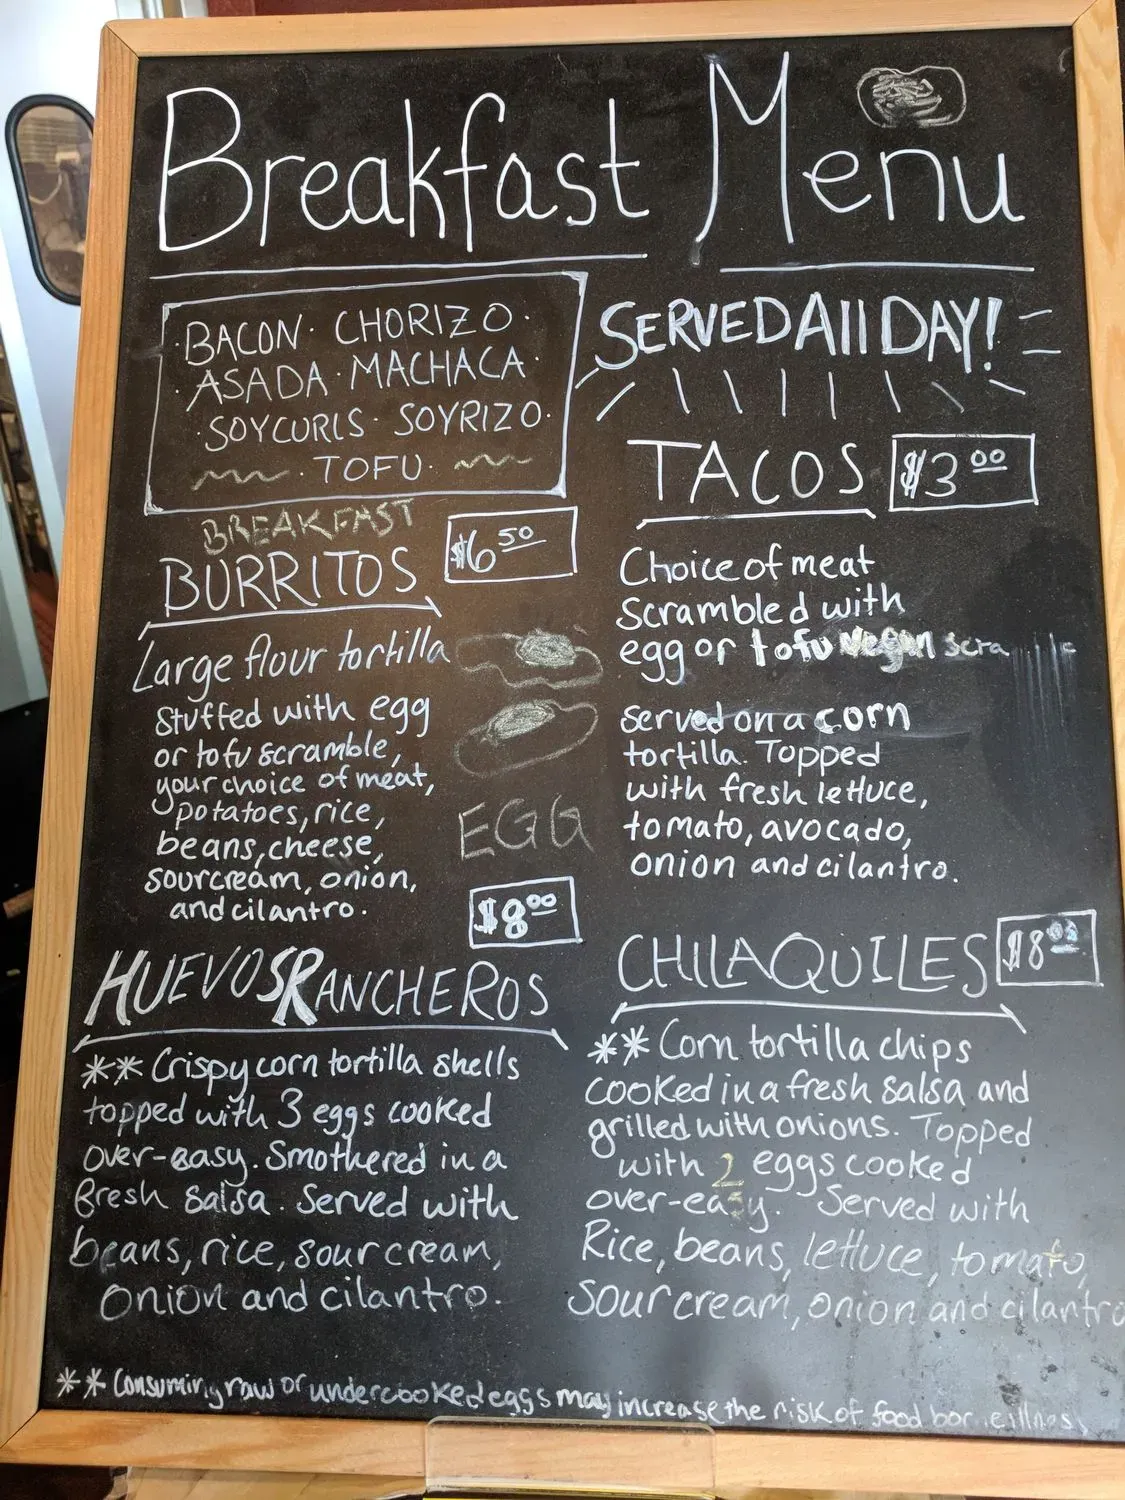 Breakfast Menu
BACON · CHORIZO ·
· ASADA · MACHACA ·
· SOYCURLS · SOYRIZO ·
· TOFU ·
SERVED All DAY!
BREAKFAST
BURRITOS $6 50
Large flour tortilla
stuffed with egg
or tofu scramble,
your choice of meat,
potatoes, rice,
beans, cheese,
sourcream, onion,
and cilantro.
EGG
TACOS $3 00
Choice of meat
Scrambled with
egg or tofu vegan
served on a corn
tortilla. Topped
with fresh lettuce,
tomato, avocado,
onion and cilantro.
$8 00
HUEVOS RANCHEROS
** Crispy corn tortilla shells
topped with 3 eggs cooked
over-easy. Smothered in a
fresh salsa. Served with
beans, rice, sour cream,
onion and cilantro.
CHILAQUILES $8
** Corn tortilla chips
cooked in a fresh salsa and
grilled with onions. Topped
with 2 eggs cooked
over-easy. Served with
Rice, beans, lettuce, tomato,
Sour cream, onion and cilantro
** Consuming raw or undercooked eggs may increase the risk of food bor e illness,